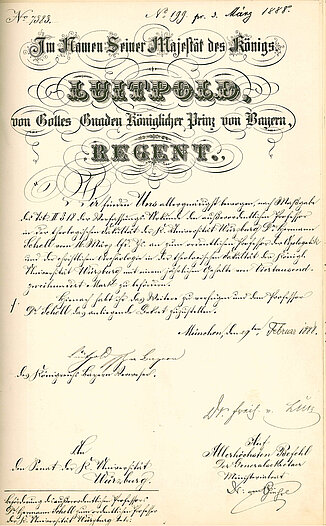 No 7383.
No 199 pr. 3. März 1888.
Im Namen Seiner Majestät des Königs.
LUITPOLD,
von Gottes Gnaden Königlicher Prinz von Bayern,
REGENT.
Wir finden Uns allergnädigst bewogen, nach Maßgabe
des Tit. II § 18 der Verfassungs-Urkunde den außerordentlichen Professor
in der theologischen Fakultät der K. Universität Würzburg Dr. Hermann
Schell vom 16. März Js. an zum ordentlichen Professor der Apologetik
und der christlichen Archäologie in der theologischen Fakultät der Königl.
Universität Würzburg mit einem jährlichen Gehalte von Viertausend
Mark zu befördern.
Hienach habt ihr das Weitere zu verfügen und dem Professor
Dr. Schell das anliegende Dekret zuzustellen.
München, den 19ten Februar 1888.
Luitpold Prinz von Bayern
des Königreichs Bayern Verweser.
Dr. Freih. v. Lutz
An
den Senat der K. Universität
Würzburg.
Auf
Allerhöchsten Befehl
Der Generalsekretär
Ministerialrat
Beförderung des außerordentlichen Professors
Dr. Hermann Schell zum ordentlichen Professor
der K. Universität Würzburg betr.